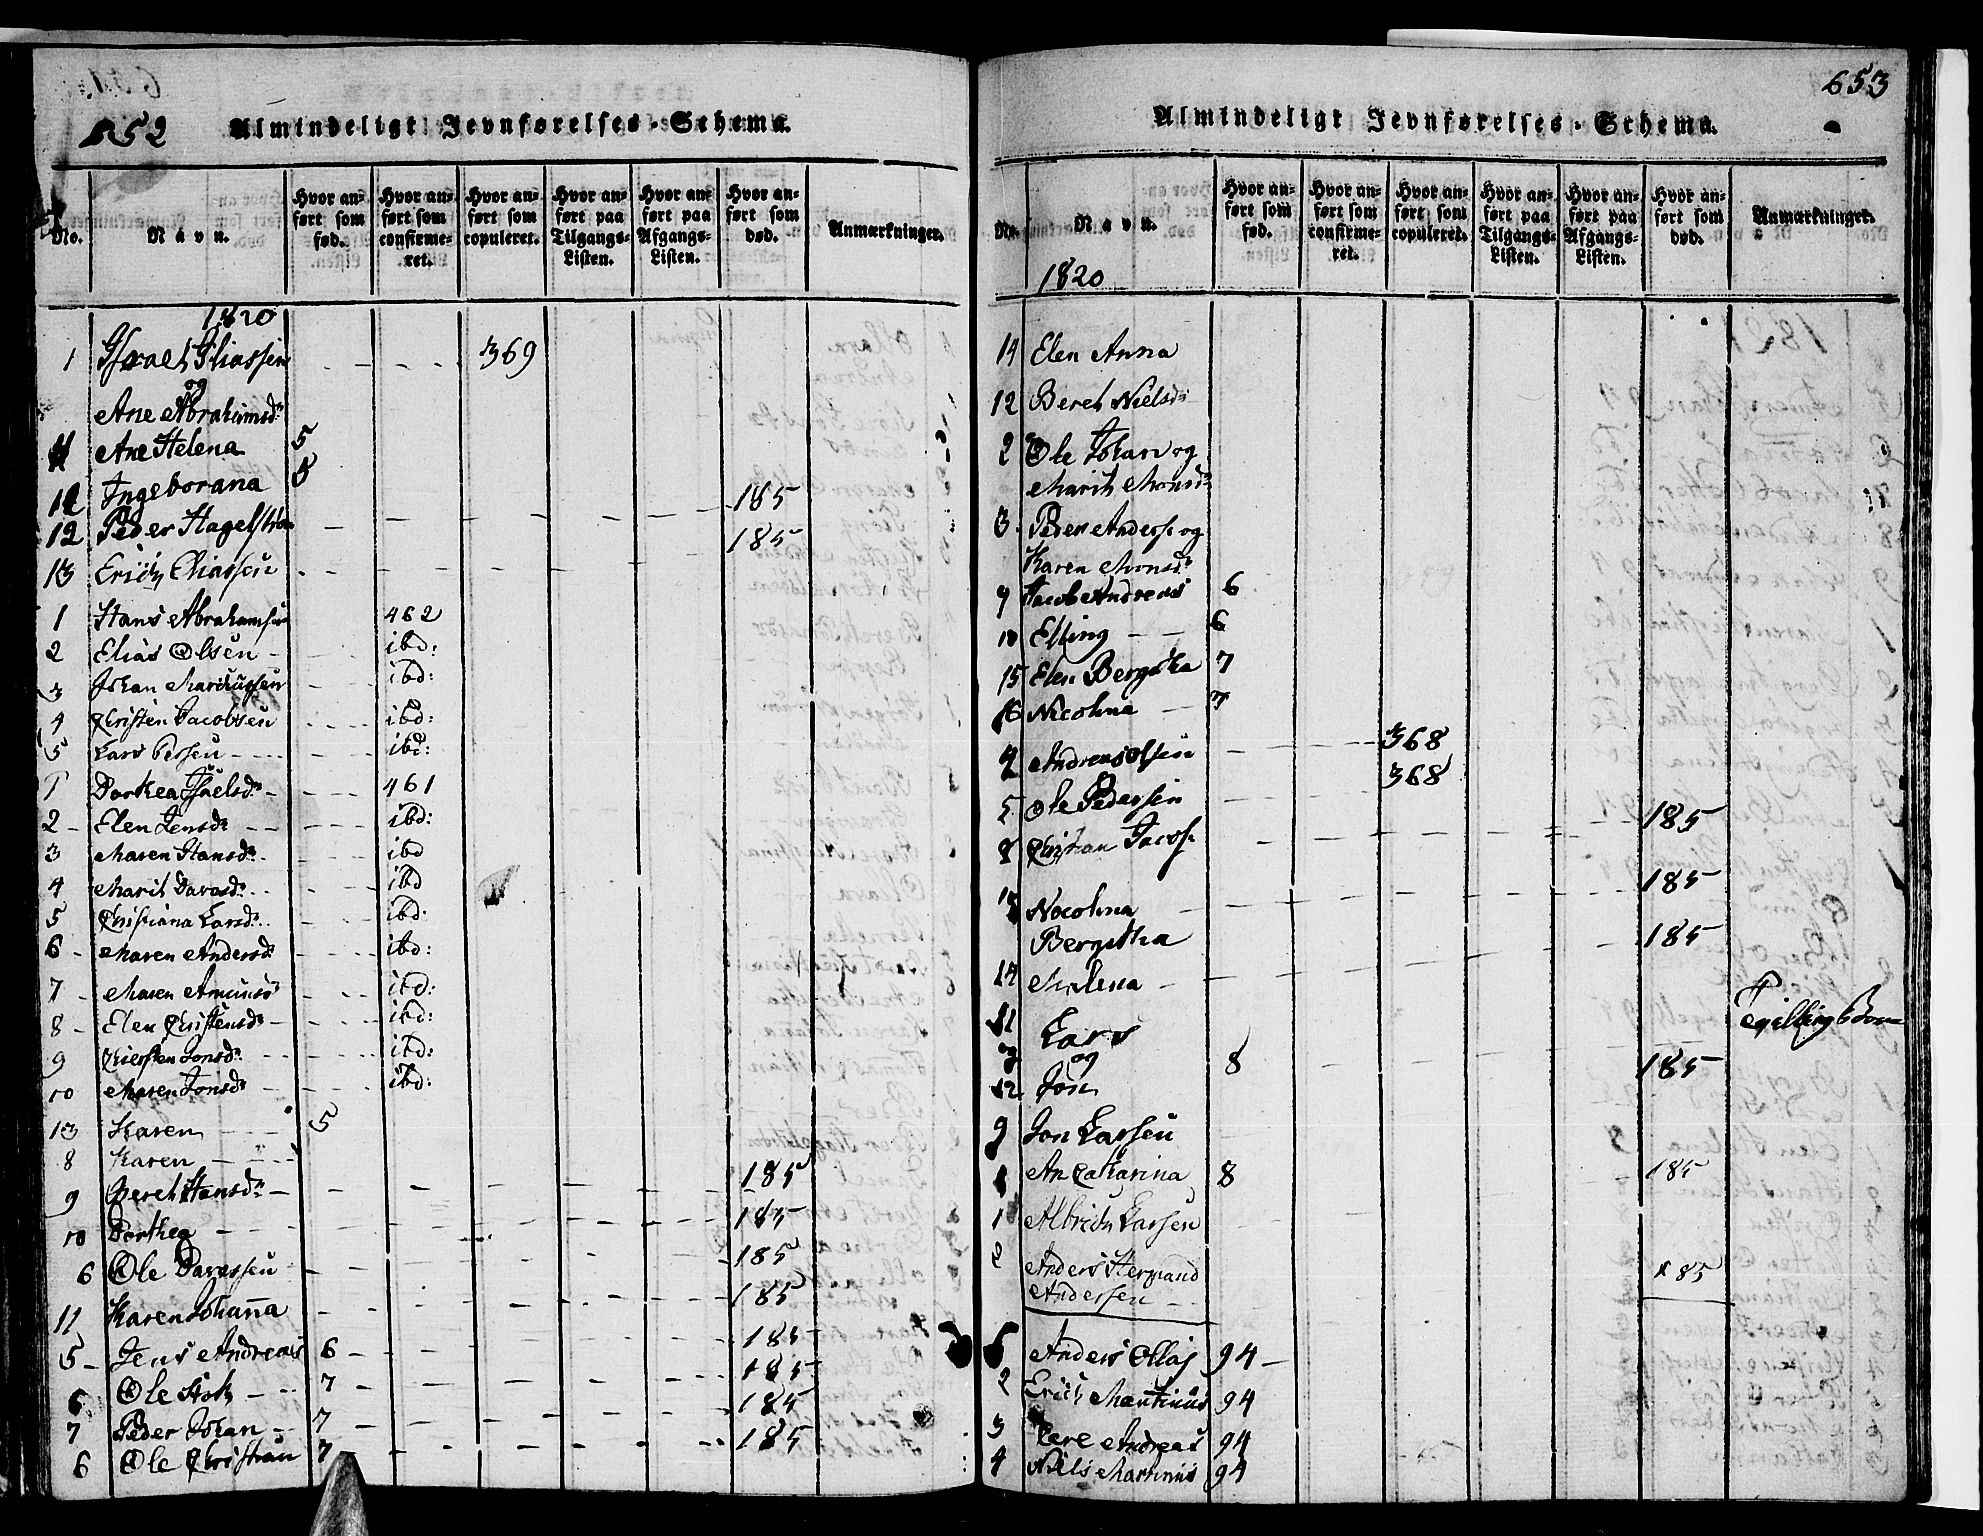 652 Almindeligt Jevnførelses-Schema.
No. Navn. Hvor anført som fød. Hvor anført som confirmeret. Hvor anført som copuleret. Hvor anført paa Tilgangs-Listen. Hvor anført paa Afgangs-Listen. Hvor anført som død. Anmærkninger.
1820
1 Israel Eliassen 369
og
Ane Abrahamsd:
11 Ane Helena 5
12 Ingeborana 5
12 Peder Hagelstrøm 185
13 Erich Eliassen 185
1 Hans Abrahamsen 462
2 Elias Olsen ibd:
3 Johan Markussen ibd:
4 Christen Jacobsen ibd:
5 Lars Persen ibd:
1 Dorthea Isaelsd: 461
2 Elen Jensd: ibd:
3 Maren Hansd: ibd
4 Marit Davasd: ibd
5 Christiana Larsd: ibd.
6 Maren Andersd: ibd:
7 Maren Amunds ibd:
8 Elen Christensd: ibd:
9 Kiersten Jonsd: ibd:
10 Maren Jonsd: ibd:
13 Karen 5
8 Karen 185
9 Beret Hansd: 185
10 Dorthea 185
6 Ole Davassen 185
11 Karen Johanna 185
5 Jens Andreas 6 185
6 Ole 7 185
7 Peder Johan 7 185
6 Ole Christian 7
653
Almindeligt Jevnførelses-Schema.
No. Navn. Hvor anført som fød. Hvor anført som confirmeret. Hvor anført som copuleret. Hvor anført paa Tilgangs-Listen. Hvor anført paa Afgangs-Listen. Hvor anført som død. Anmærkninger.
1820
14 Elen Anna
12 Beret Nielsd:
2 Ole Johan og
Marit Monsd:
3 Peder Anders: og
Karen Monsd:
9 Jacob Andreas 6
10 Elling 6
15 Elen Bergitha 7
16 Nicolina 7
4 Andreas Olsen 368
5 Ole Pedersen 368
8 Christian Jacobs: 185
13 Nocolina 185
Bergitha
14 Malena 185
11 Lars
og og 8 185
12 Jon
9 Jon Larssen
An Catharina 8 185
1 Albrich Larsen
2 Anders Hermand 185
Andersen
Anders Olaj 94
2 Erich Martinus 94
3 Pere Andreas 94
4 Niels Martinus 94